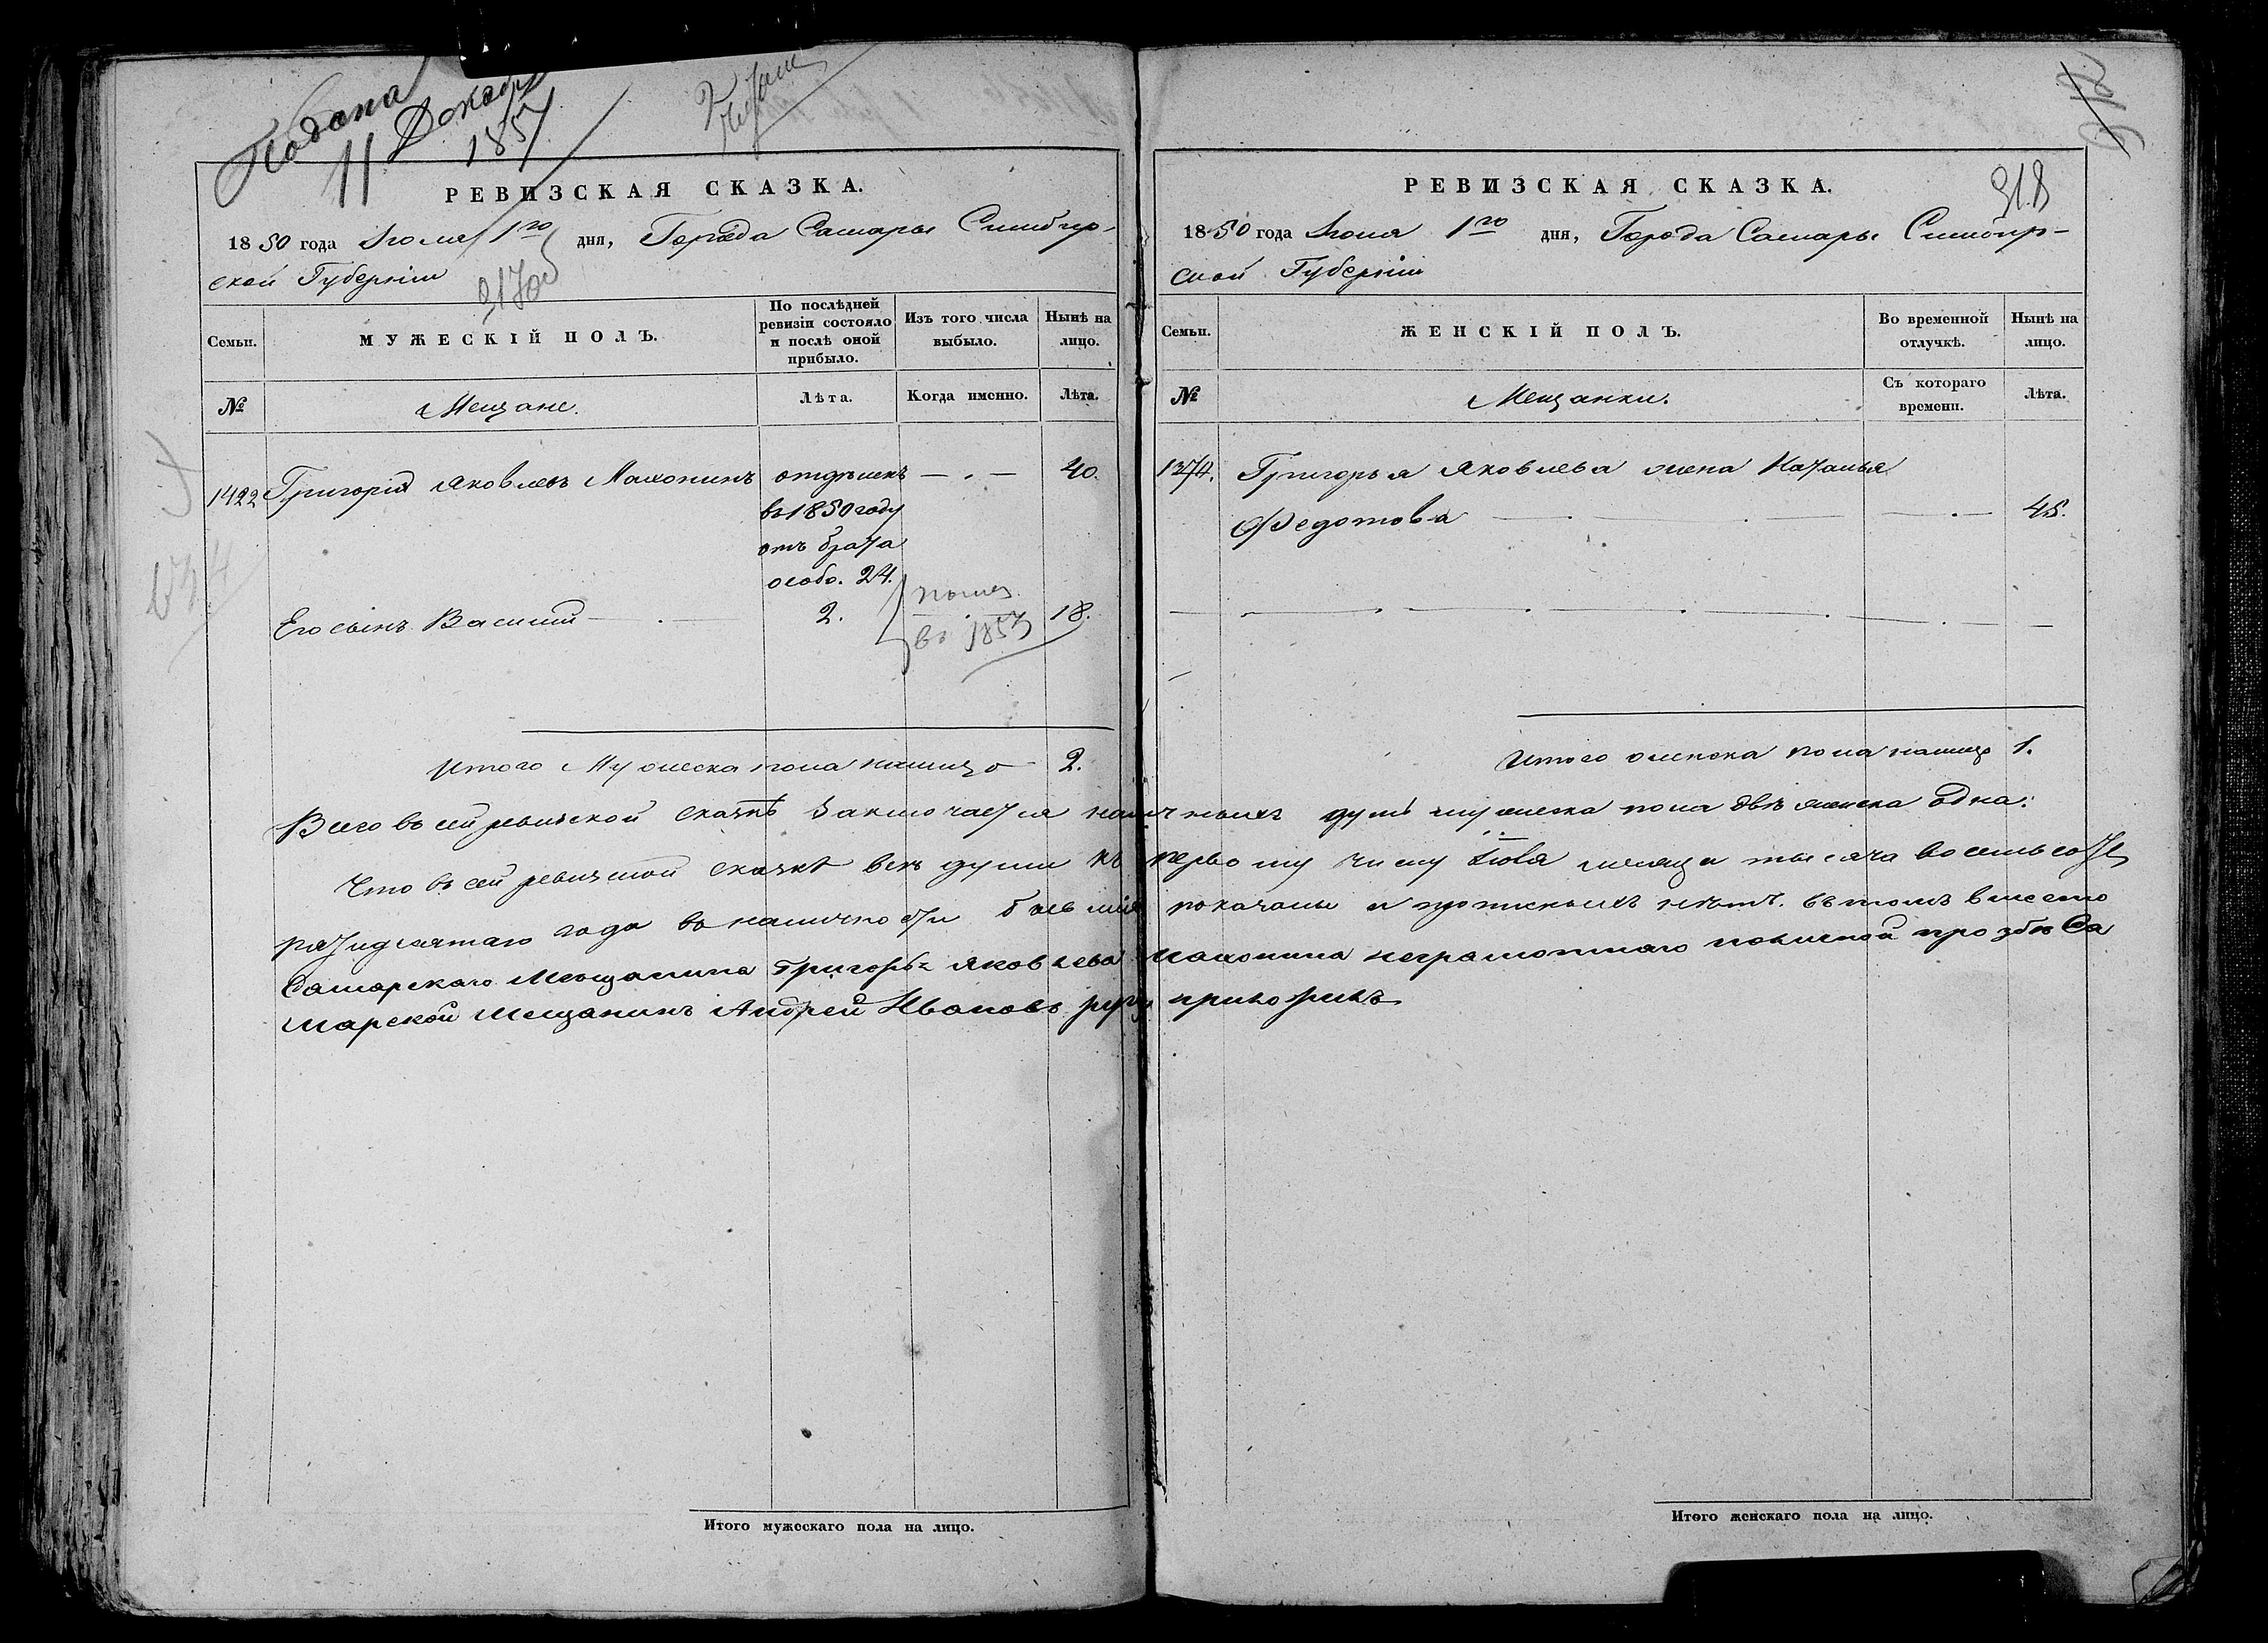 Подана
11 Декабр
1857
РЕВИЗСКАЯ СКАЗКА.
1850 года Июля 1го дня, Города Самары Симбир-
ской Губернiи
317об
Семьи.
МУЖЕСКІЙ ПОЛЪ.
По послѣдней ревизіи состояло и послѣ оной прибыло.
Изъ того числа выбыло.
Нынѣ на лицо.
№
Мещане.
Лѣта.
Когда именно.
Лѣта.
1422 Григорiй Яковлевъ Махонинъ отдѣленъ — . — 40.
въ 1850 году
отъ брата
особо. 24.
Его сынъ Василий — . — 2. 18.
въ 1853
Итого Мужеска пола налицо 2.
РЕВИЗСКАЯ СКАЗКА.
318
1850 года Июля 1го дня, Города Самары Симбир-
ской Губернiи
Семьи.
ЖЕНСКІЙ ПОЛЪ.
Во временной отлучкѣ.
Нынѣ на лицо.
№
Мещанки.
Съ котораго времени.
Лѣта.
1374. Григорья Яковлева жена Наталья
Федотова — . — . — 45.
Итого женска пола налицо 1.
Всего въ сей ревизской сказкѣ заключается наличныхъ душъ мужеска пола двѣ женска одна.
Что въ сей ревизской сказкѣ всѣ души къ первому числу Июля месяца тысяча восемьсотъ
пятидесятаго года въ наличности бывшiя показаны и прописныхъ нѣтъ. въ томъ вместо
Самарскаго Мещанина Григорья Яковлева Махонина неграмотнаго поличной прозбѣ Са
марской мещанинъ Андрей Ивановъ руку приложилъ
Итого мужескаго пола на лицо.
Итого женскаго пола на лицо.